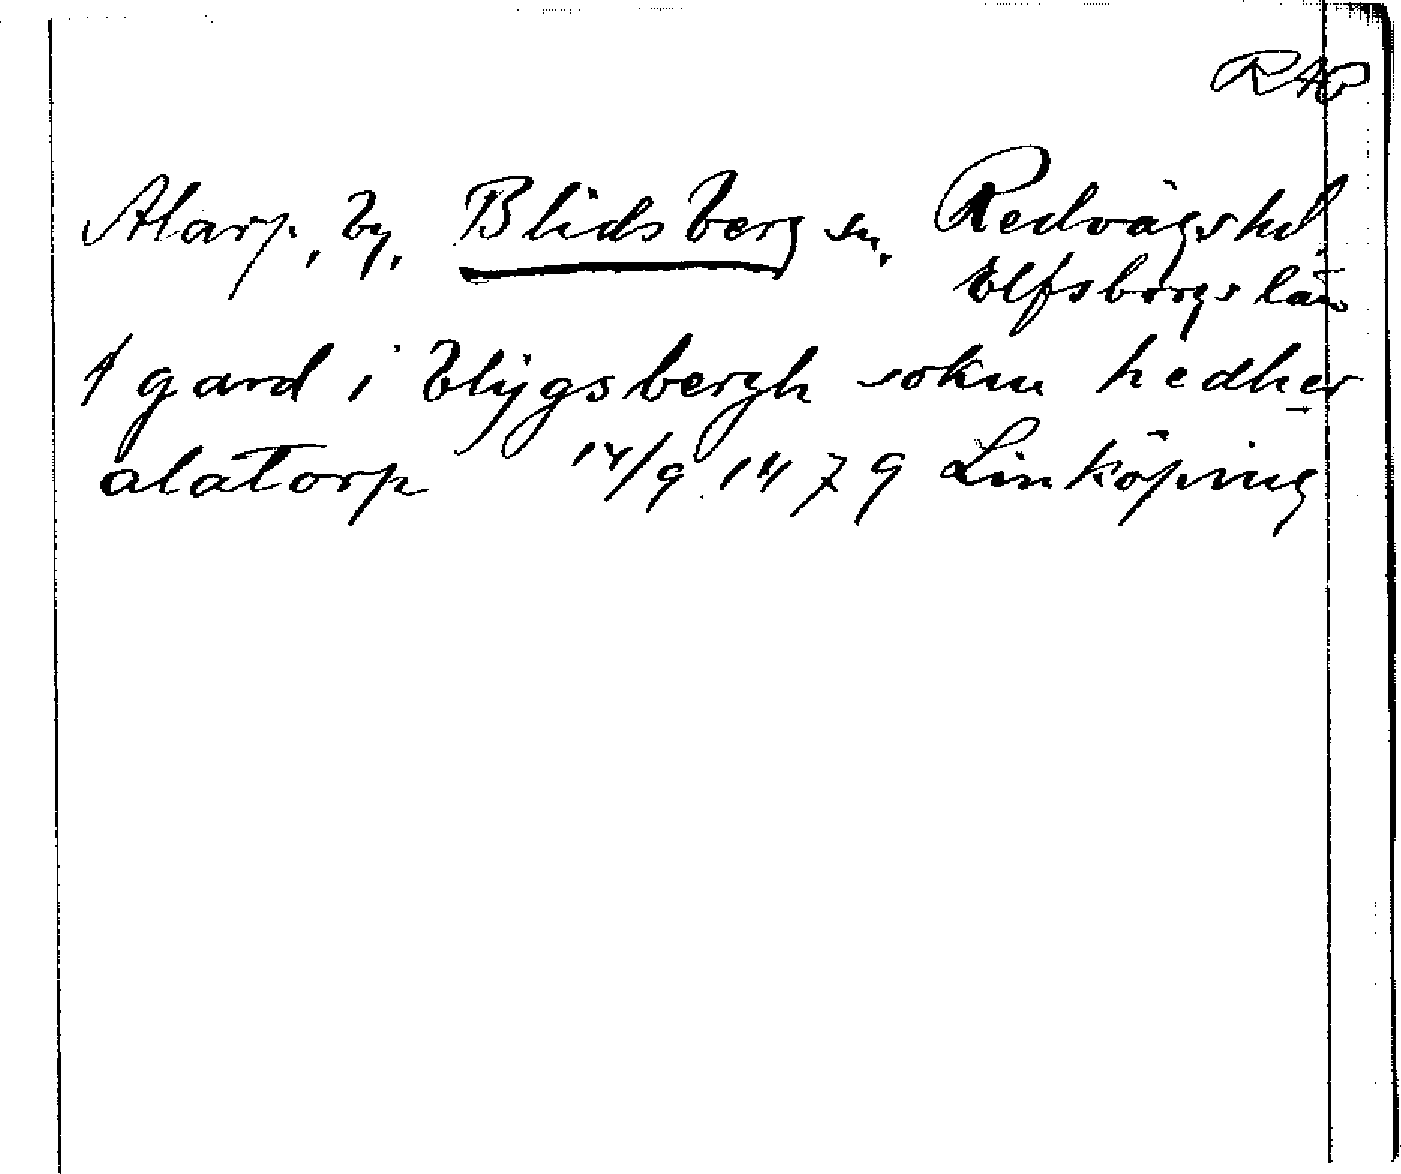 RAP
Alarp, by, Blidsberg sn, Redvägs hd,
Elfsborgs län
1 gard i blijgsbergh soknn hedher
alatorp 14/9 1479 Linköping